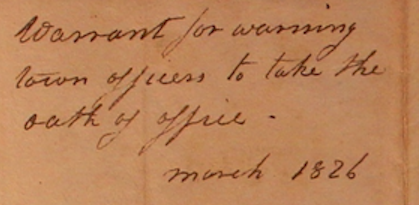 Warrant for warning
town officers to take the
oath of office -
march 1826